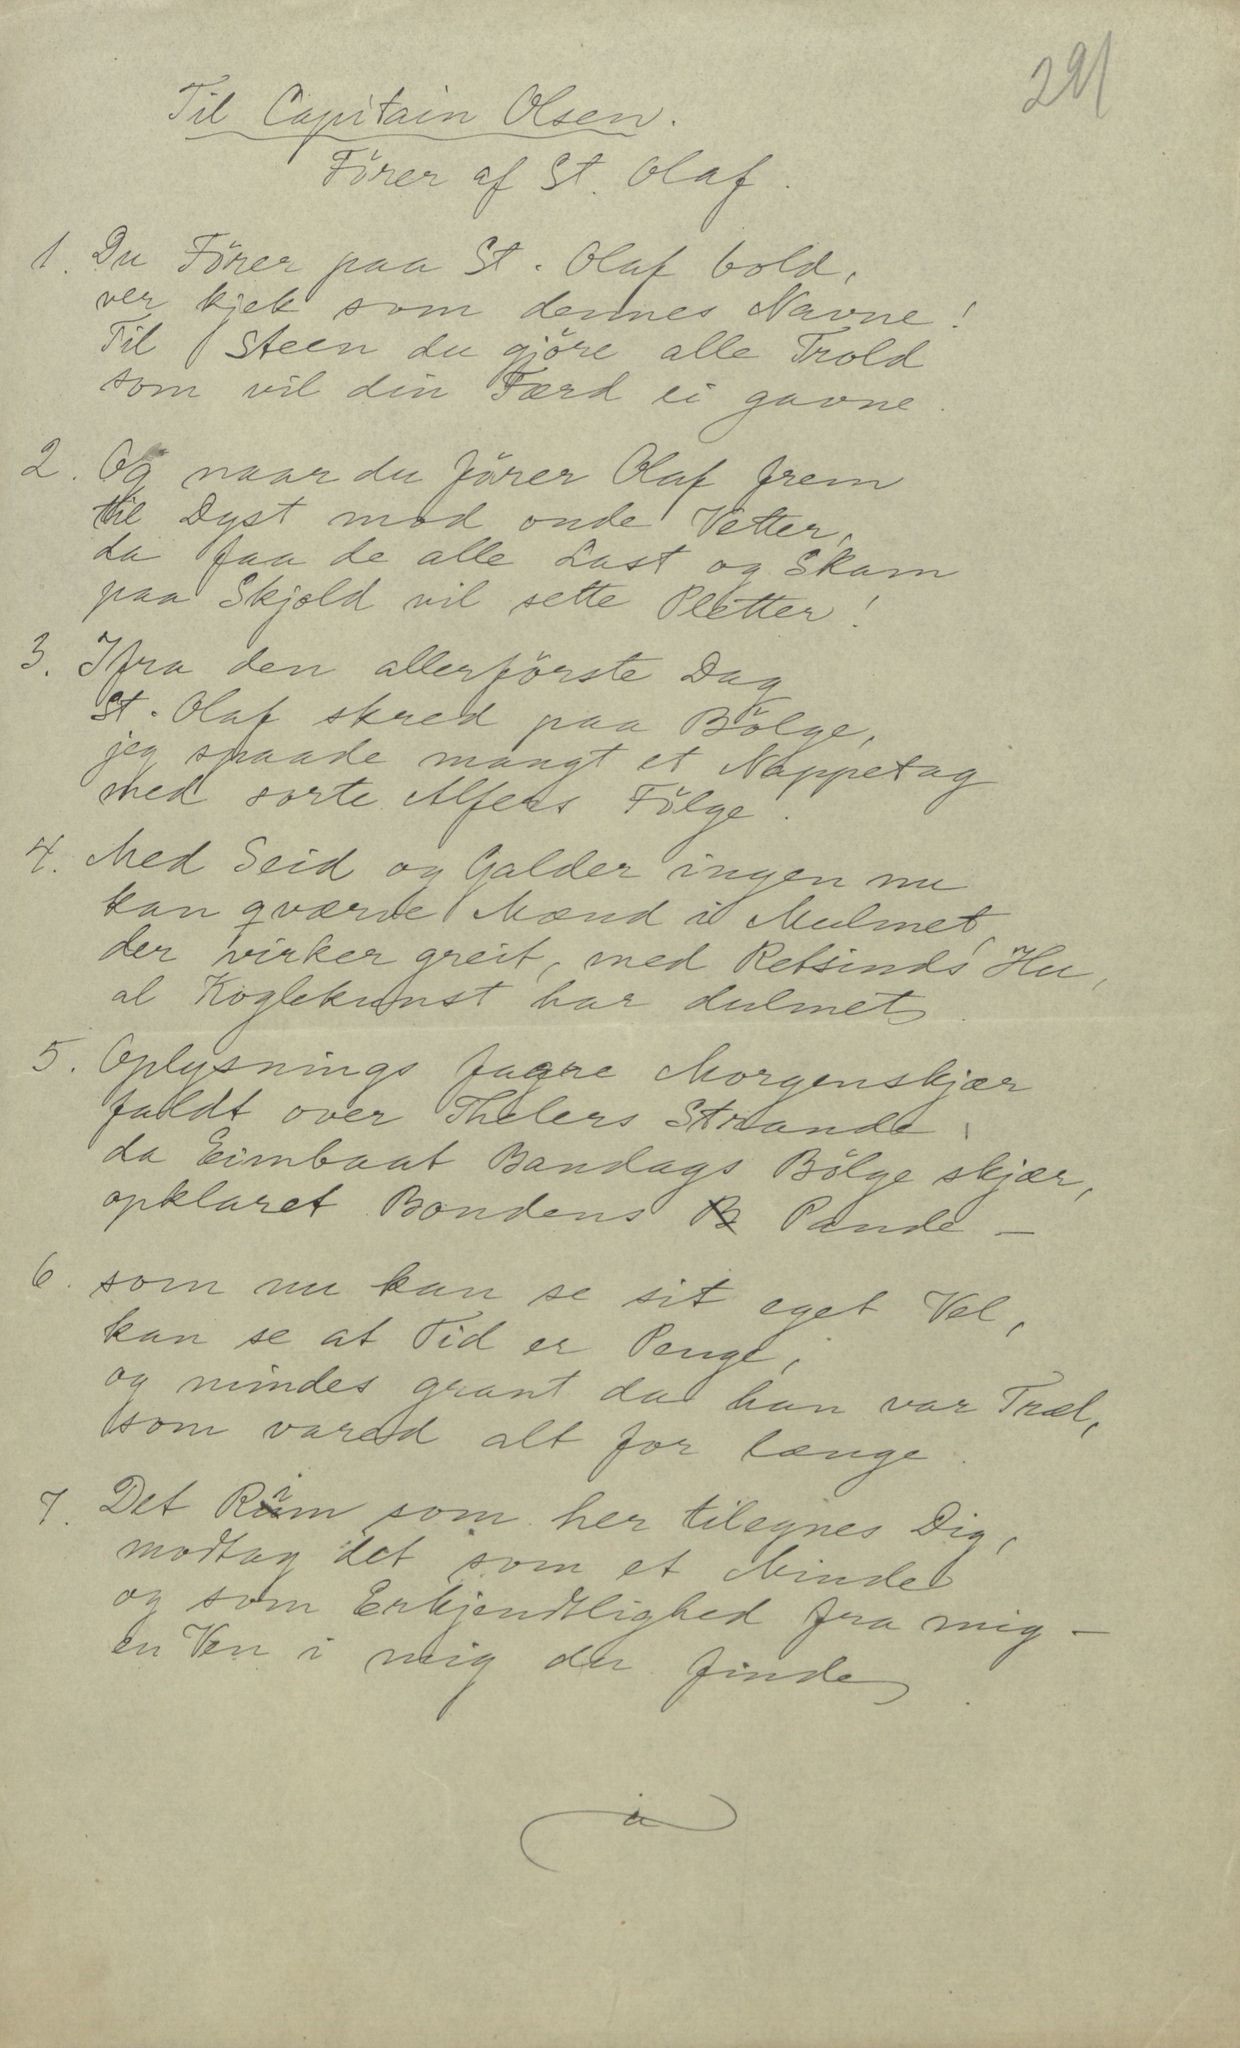 291
Til Capitain Olsen.
Förer af St. Olaf.
1. Du Förer paa St. Olaf bold,
ver kjek som dennes Navne!
Til Steen du gjöre alle Trold
som vil din Færd ei gavne.
2. Og naar du förer Olaf frem
til Dyst mod onde Vetter,
da faa de alle Last og Skam
paa Skjold vil sette Pletter!
3. Ifra den allerförste Dag
St. Olaf skred paa Bölge,
jeg spaade mangt et Nappetag
med sorte Alfers Fölge.
4. Med Seid og Galder ingen nu
kan qværve Mænd i Mulmet,
der virker greit, med Retsinds Hu,
al Koglekunst har dulmet.
5. Oplysnings fagre Morgenskjær
faldt over Thelers Strande,
da Eimbaat Bandags Bölge skjær,
opklaret Bondens Pande —
6. som nu kan se sit eget Vel,
kan se at Tid er Penge,
og mindes grant da han var Træl,
som vared alt for længe.
7. Det Rim som her tilegnes Dig,
modtag det som et Minde
og som Erkjendtlighed fra mig —
en Ven i mig du finde